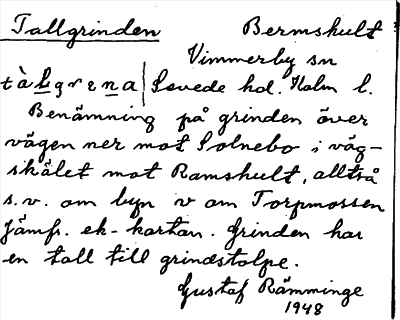 Tallgrinden Bermshult
Vimmerby sn
tàlgrena Sevede hd. Kalm l.
Benämning på grinden över
vägen ner mot Solnebo i väg-
skälet mot Ramshult, alltså
s.v. om byn v om Torpmossen
Jämf. ek-kartan. Grinden har
en tall till grindstolpe.
Gustaf Rämminge
1948